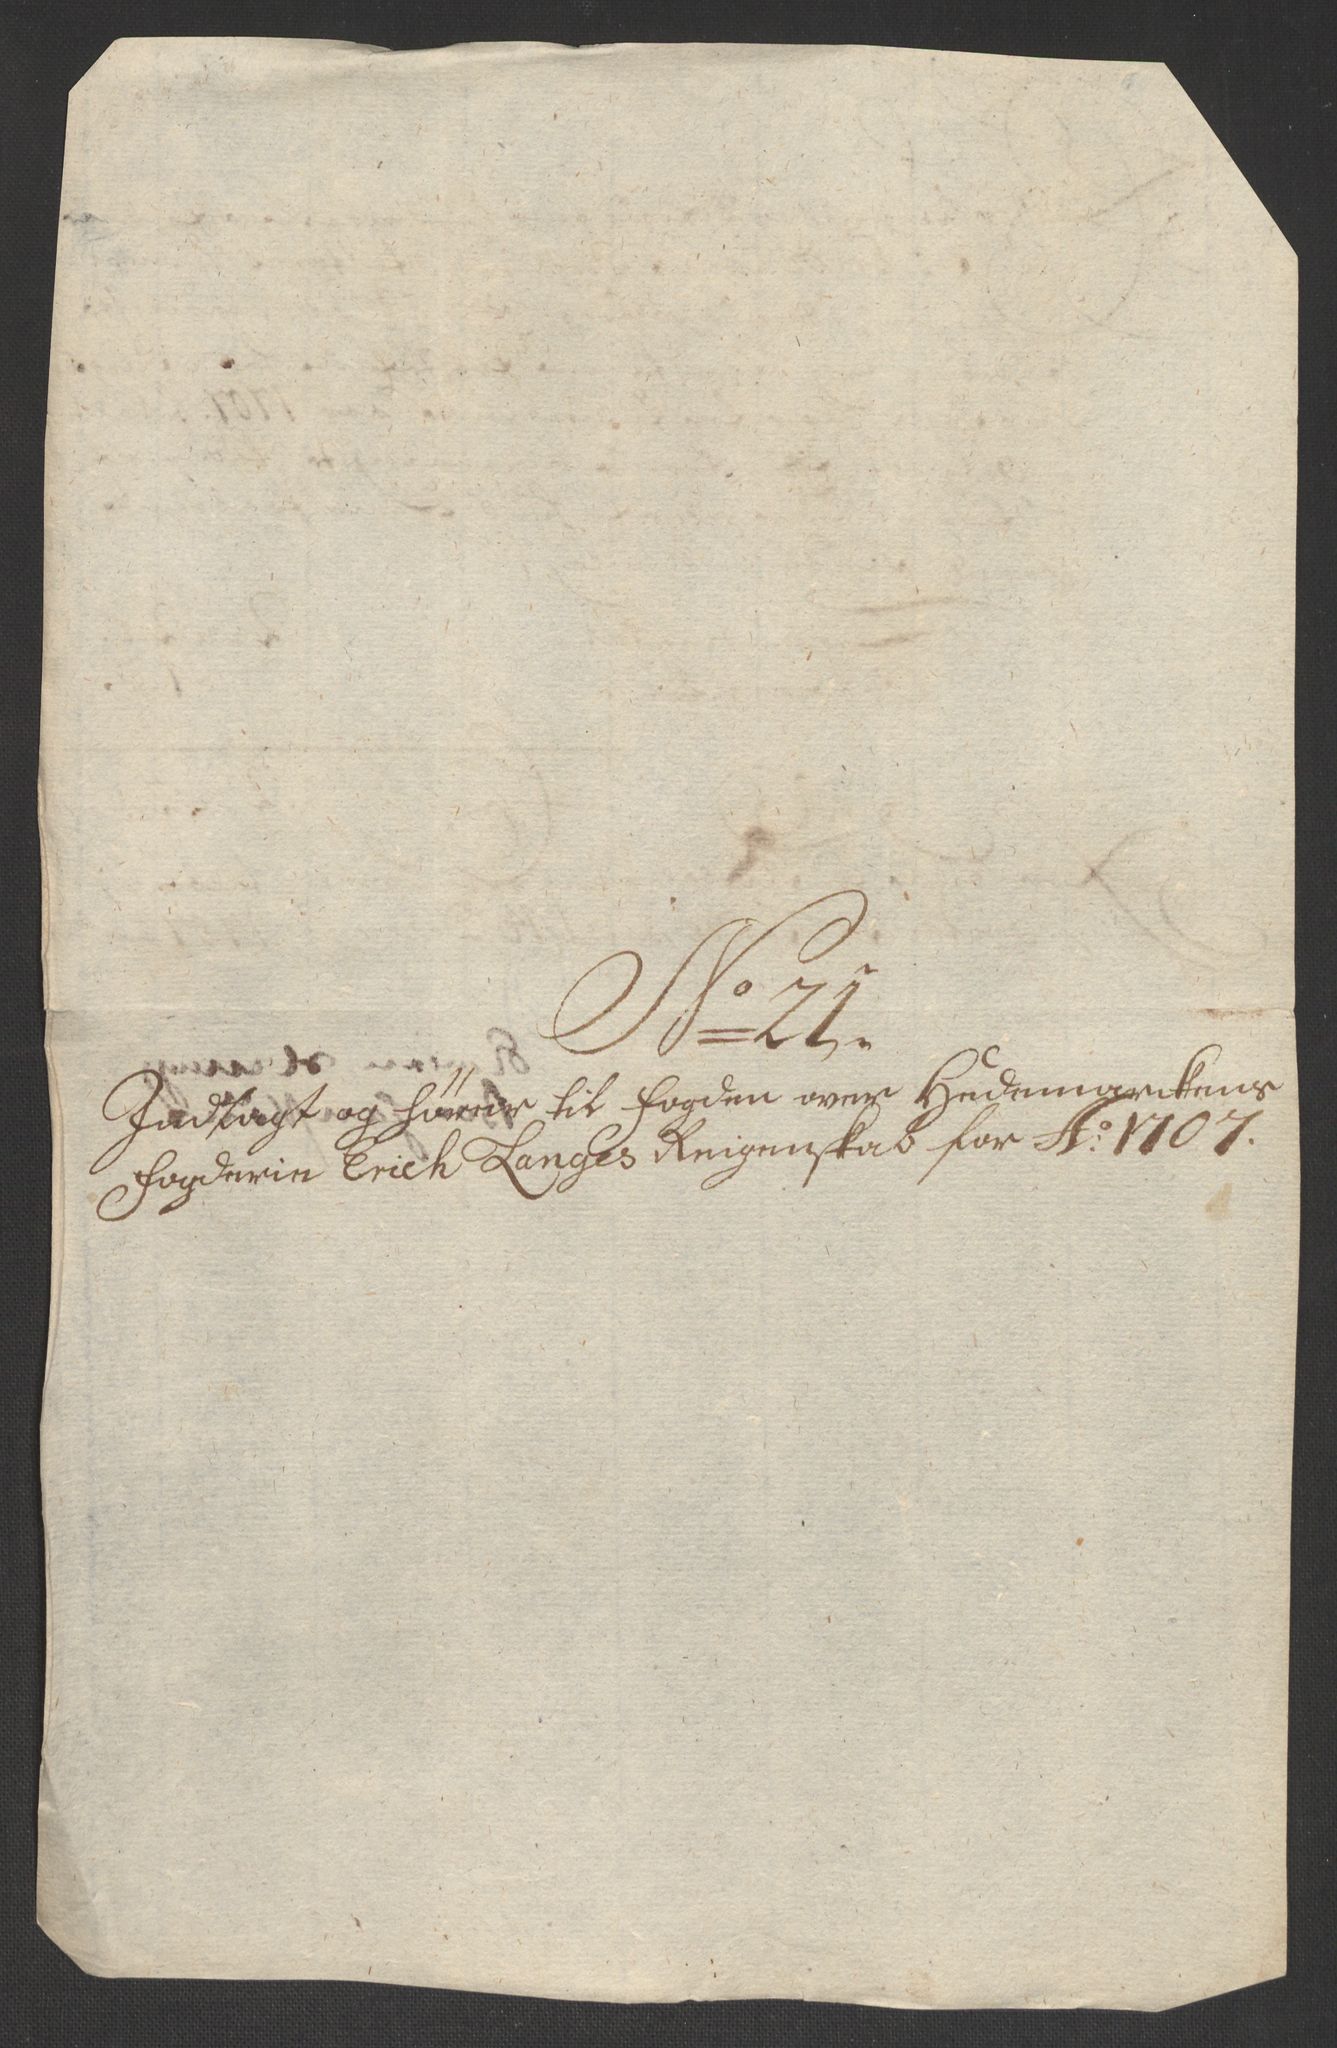 No 21.
Indlagt og hører til fogden over Hedemarckens
fogderie Erich Langes Reigenskab for Ao: 1707.